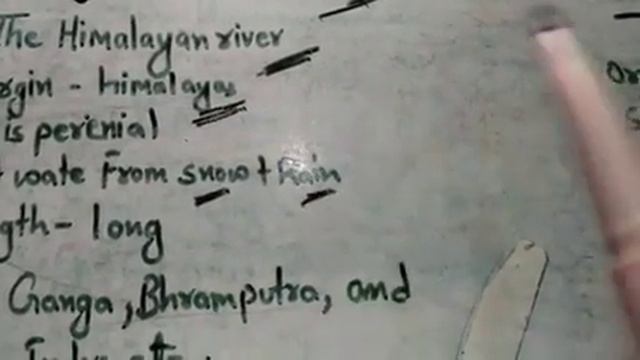 The Himalayan river
rgin - Himalayas
is perenial
wate from snow + Rain
gth - long
Ganga, Bhramputra, and
Or